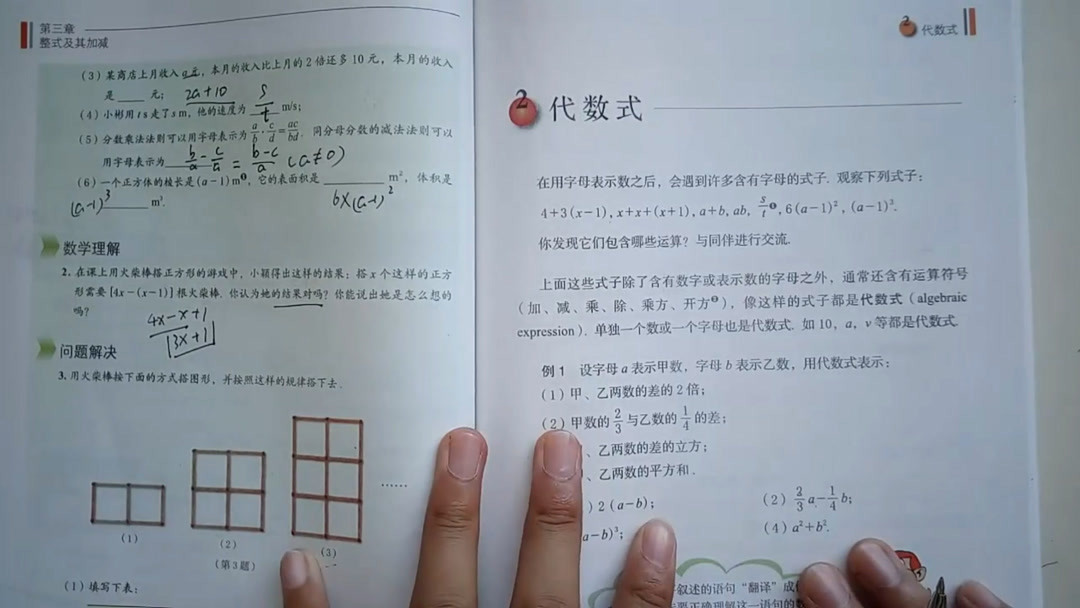 第三章
整式及其加减
(3) 某商店上月收入 a 元, 本月的收入比上月的 2 倍还多 10 元, 本月的收入
是 ____ 元; 2a+10
(4) 小彬用 t s 走了 s m, 他的速度为 s/t m/s;
(5) 分数乘法法则可以用字母表示为 a/b · c/d = ac/bd. 同分母分数的减法法则可以
用字母表示为 b/a - c/a = b-c/a (a≠0)
(6) 一个正方体的棱长是 (a-1) m❶, 它的表面积是 ____ m², 体积是
(a-1)³ ____ m³. 6×(a-1)²
数学理解
2. 在课上用火柴棒搭正方形的游戏中, 小颖得出这样的结果: 搭 x 个这样的正方
形需要 [4x-(x-1)] 根火柴棒. 你认为她的结果对吗? 你能说出她是怎么想的
吗?
4x-x+1
3x+1
问题解决
3. 用火柴棒按下面的方式搭图形, 并按照这样的规律搭下去.
……
(1) (2) (3)
(第 3 题)
(1) 填写下表:
2 代数式
2 代数式
在用字母表示数之后, 会遇到许多含有字母的式子. 观察下列式子:
4+3(x-1), x+x+(x+1), a+b, ab, s/t❶, 6(a-1)², (a-1)³.
你发现它们包含哪些运算? 与同伴进行交流.
上面这些式子除了含有数字或表示数的字母之外, 通常还含有运算符号
(加、减、乘、除、乘方、开方❷), 像这样的式子都是代数式 (algebraic
expression). 单独一个数或一个字母也是代数式. 如 10, a, v 等都是代数式.
例 1 设字母 a 表示甲数, 字母 b 表示乙数, 用代数式表示:
(1) 甲、乙两数的差的 2 倍;
(2) 甲数的 2/3 与乙数的 1/4 的差;
、乙两数的差的立方;
、乙两数的平方和.
) 2(a-b); (2) 2/3 a - 1/4 b;
a-b)³; (4) a²+b².
叙述的语句“翻译”成
要正确理解这一语句的数